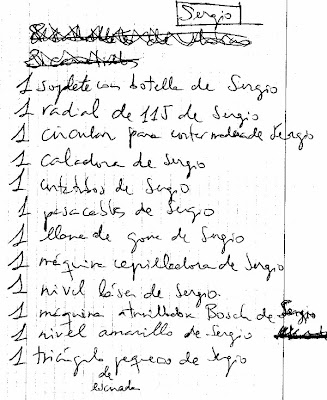 Sergio
1 soplete con botella de Sergio
1 radial de 115 de Sergio
1 circular para cortar madera de Sergio
1 caladora de Sergio
1 cortatubos de Sergio
1 pasacables de Sergio
1 llave de goma de Sergio
1 máquina cepilladora de Sergio
1 nivel láser de Sergio.
1 máquina atornilladora Bosch de Sergio
1 nivel amarillo de Sergio
1 triángulo pequeño de Sergio
de
escuadra